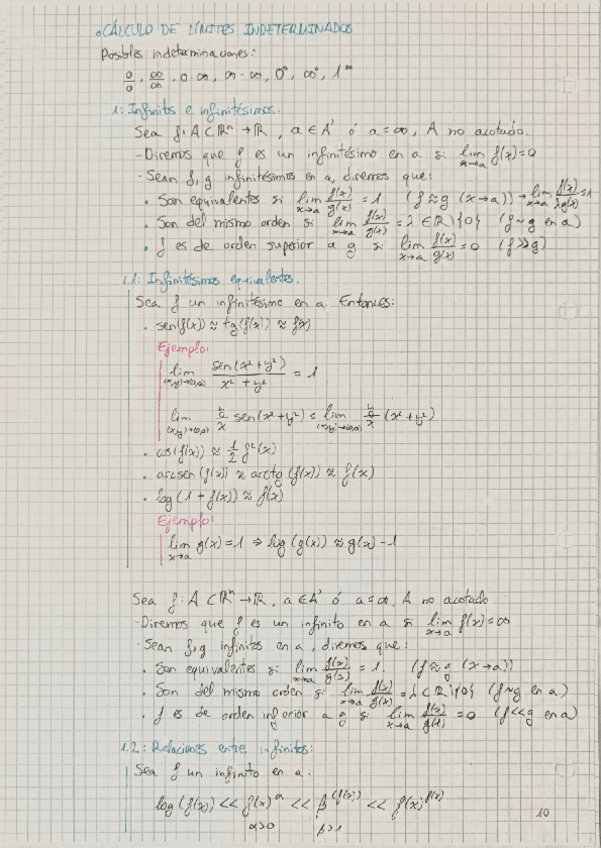 CÁLCULO DE LÍMITES INDETERMINADOS
Posibles indeterminaciones:
0/0, ∞/∞, 0·∞, ∞-∞, 0⁰, ∞⁰, 1^∞
1: Infinitos e infinitésimos.
Sea f: A⊂ℝⁿ→ℝ, a∈A' ó a=∞, A no acotado.
- Diremos que f es un infinitésimo en a si lim x→a f(x)=0
- Sean f,g infinitésimos en a, diremos que:
• Son equivalentes si lim x→a f(x)/g(x) = 1 (f≈g (x→a)) → lim x→a f(x)/g(x) = 1
• Son del mismo orden si lim x→a f(x)/g(x) = λ ∈ℝ\{0} (f~g en a)
• f es de orden superior a g si lim x→a f(x)/g(x) = 0 (f>>g)
1.1: Infinitésimos equivalentes.
Sea f un infinitésimo en a. Entonces:
• sen(f(x)) ≈ tg(f(x)) ≈ f(x)
Ejemplo:
lim (x,y)→(0,0) sen(x²+y²)/(x²+y²) = 1
lim (x,y)→(0,0) sen(x²+y²) = lim (x,y)→(0,0) (x²+y²)
• cos(f(x)) ≈ 1/2 f²(x)
• arcsen(f(x)) ≈ arctg(f(x)) ≈ f(x)
• log(1+f(x)) ≈ f(x)
Ejemplo:
lim x→a g(x)=1 ⇒ log(g(x)) ≈ g(x)-1
Sea f: A⊂ℝⁿ→ℝ, a∈A' ó a=∞, A no acotado
- Diremos que f es un infinito en a si lim x→a f(x)=∞
- Sean f,g infinitos en a, diremos que:
• Son equivalentes si lim x→a f(x)/g(x) = 1. (f≈g (x→a))
• Son del mismo orden si lim x→a f(x)/g(x) = λ⊂ℝ\{0} (f~g en a)
• f es de orden inferior a g si lim x→a f(x)/g(x) = 0 (f<<g en a)
1.2: Relaciones entre infinitos:
Sea f un infinito en a:
log(f(x)) << f(x)^α << β^(f(x)) << f(x)^f(x)
α>0 β>1
10